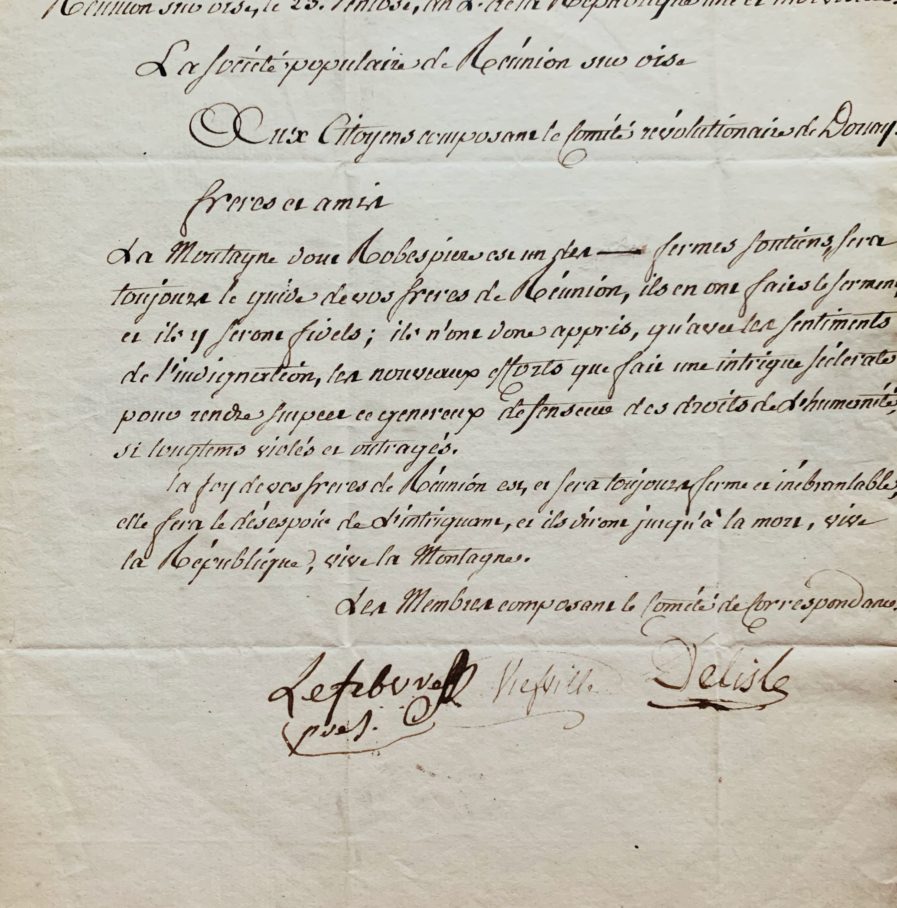 Réunion sur oise, le 25. Ventose, an 2. de la République une et indivisible.
La société populaire de Réunion sur oise
Aux Citoyens composant le Comité révolutionaire de Douay.
freres et amis
La Montagne dont Robespiere est un des — fermes soutiens, sera
toujours le guide de vos freres de Réunion, ils en ont faits le serment,
et ils y seront fidels ; ils n'ont donc appris, qu'avec les sentiments
de l'indignation, les nouveaux efforts que fait une intrigue scélerate
pour rendre suspect ce genereux defenseur des droits de l'humanité,
si longtems violés et outragés.
la foy de vos freres de Réunion est, et sera toujours ferme et inébranlable,
elle fera le désespoir de l'intriguant, et ils diront jusqu'à la mort, vive
la République, vive la Montagne.
Les Membres composant le Comité de Correspondance.
Lefebvre Viefville Delisle
pres.